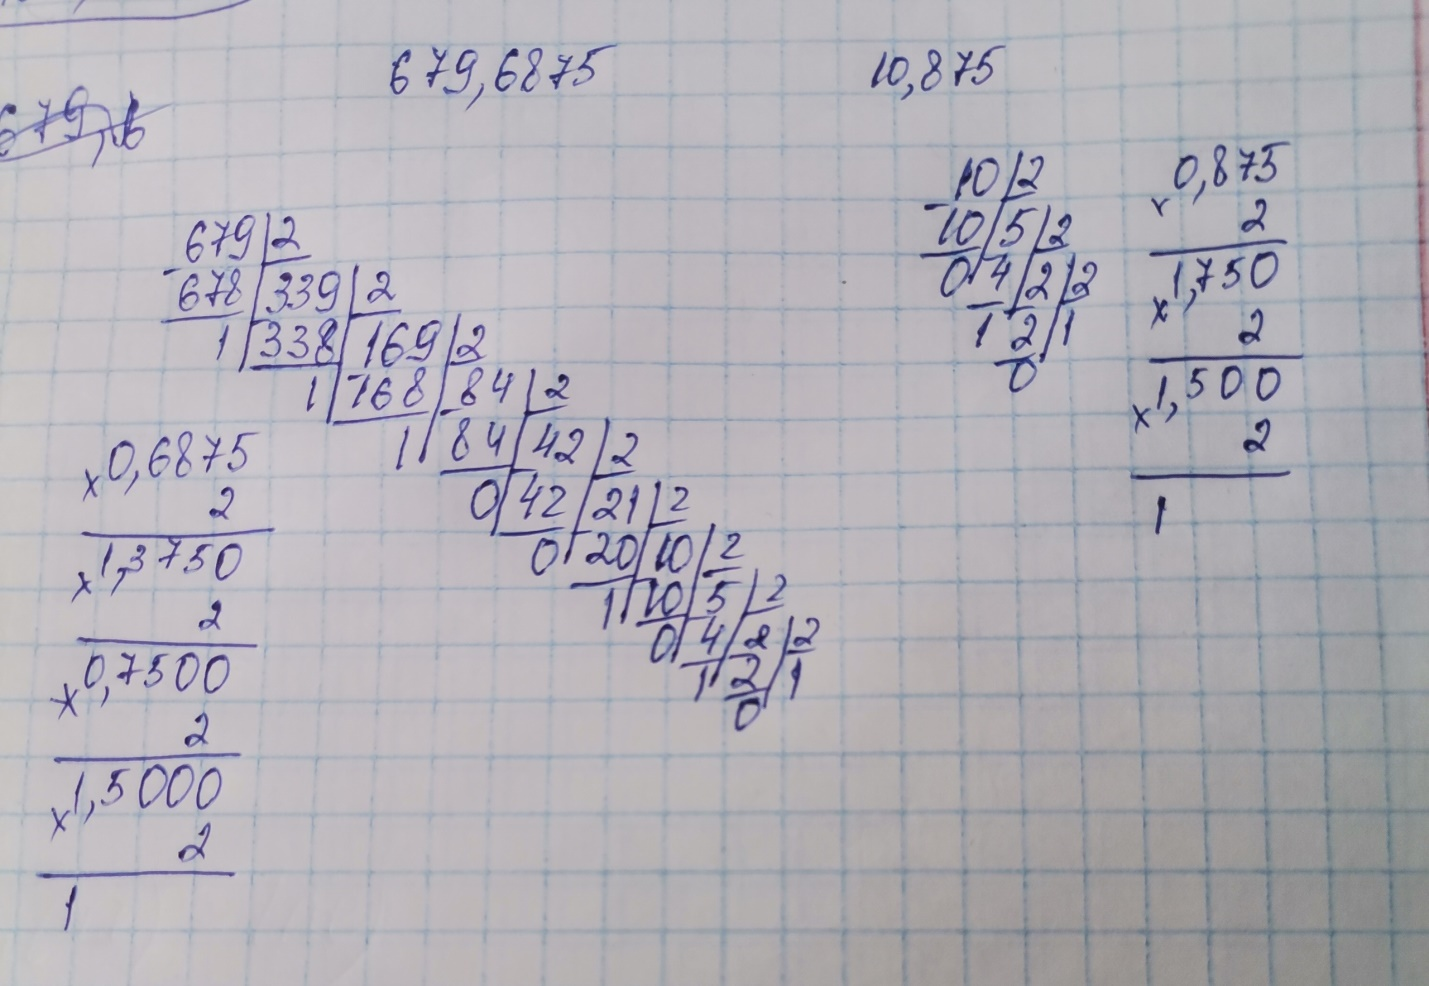 679,6875
10,875
679 2
678 339 2
1 338 169 2
1 168 84 2
1 84 42 2
0 42 21 2
0 20 10 2
1 10 5 2
0 4 2 2
1 2 1
0
x 0,6875
2
x 1,3750
2
x 0,7500
2
x 1,5000
2
1
- 10 2
10 5 2
0 4 2 2
1 2 1
0
x 0,875
2
x 1,750
2
x 1,500
2
1